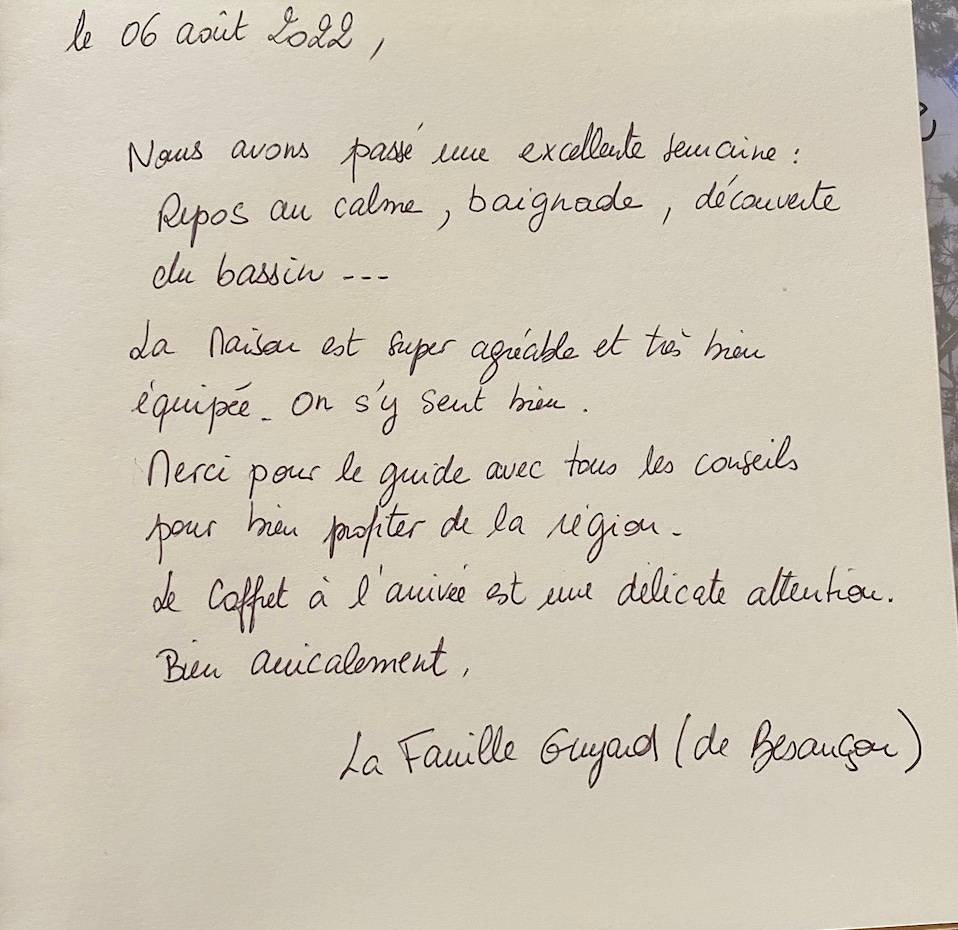 le 06 août 2022,
Nous avons passé une excellente semaine :
Repos au calme, baignade, découverte
du bassin ---
La Maison est super agréable et très bien
équipée. On s'y sent bien.
Merci pour le guide avec tous les conseils
pour bien profiter de la région.
Le Coffret à l'arrivée est une délicate attention.
Bien amicalement,
La Famille Guyard (de Besançon)